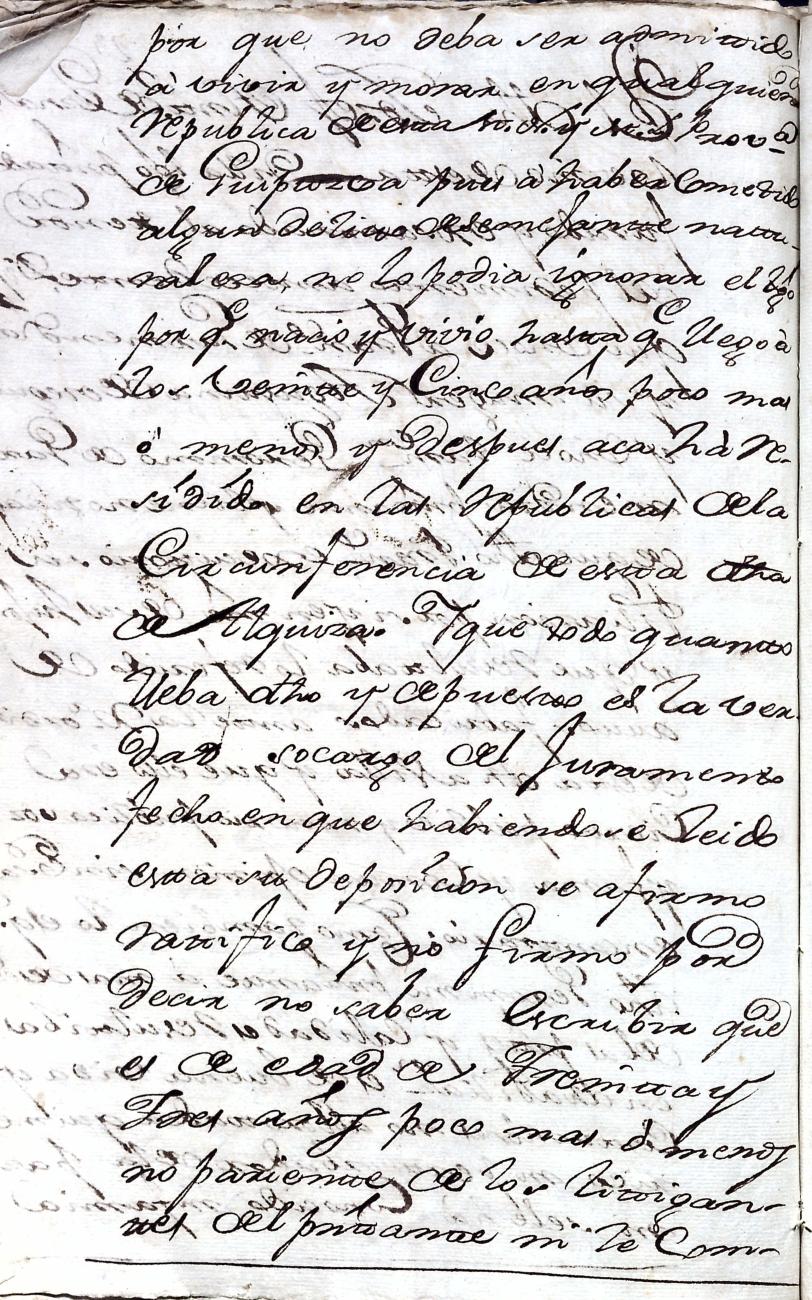 por que no deba ser admitido
à vivir y morar en qualquiera
republica de esta M. N. y M. L. Prov.ª
de Guipuzcoa pues à haber Cometido
algun delito de semejante natu-
raleza, no lo podia ignorar el tgo
por q.e nacio y vivio hasta q.e llego à
los Veinte y Cinco años poco mas
ó menos y despues aca hà re-
sidido en las republicas de la
Circunferencia de esta dha
de Alquiza. Y que todo quanto
lleba dho y depuesto es la ver
dad socargo del Juramento
fecho en que habiendose leido
esta su deposicion se afirmo
ratifico y no firmo por
decir no saber Escribir que
es de edad de Treinta y
Tres años poco mas ó menos
no pariente de los litigan-
tes del pntante ni le Com-